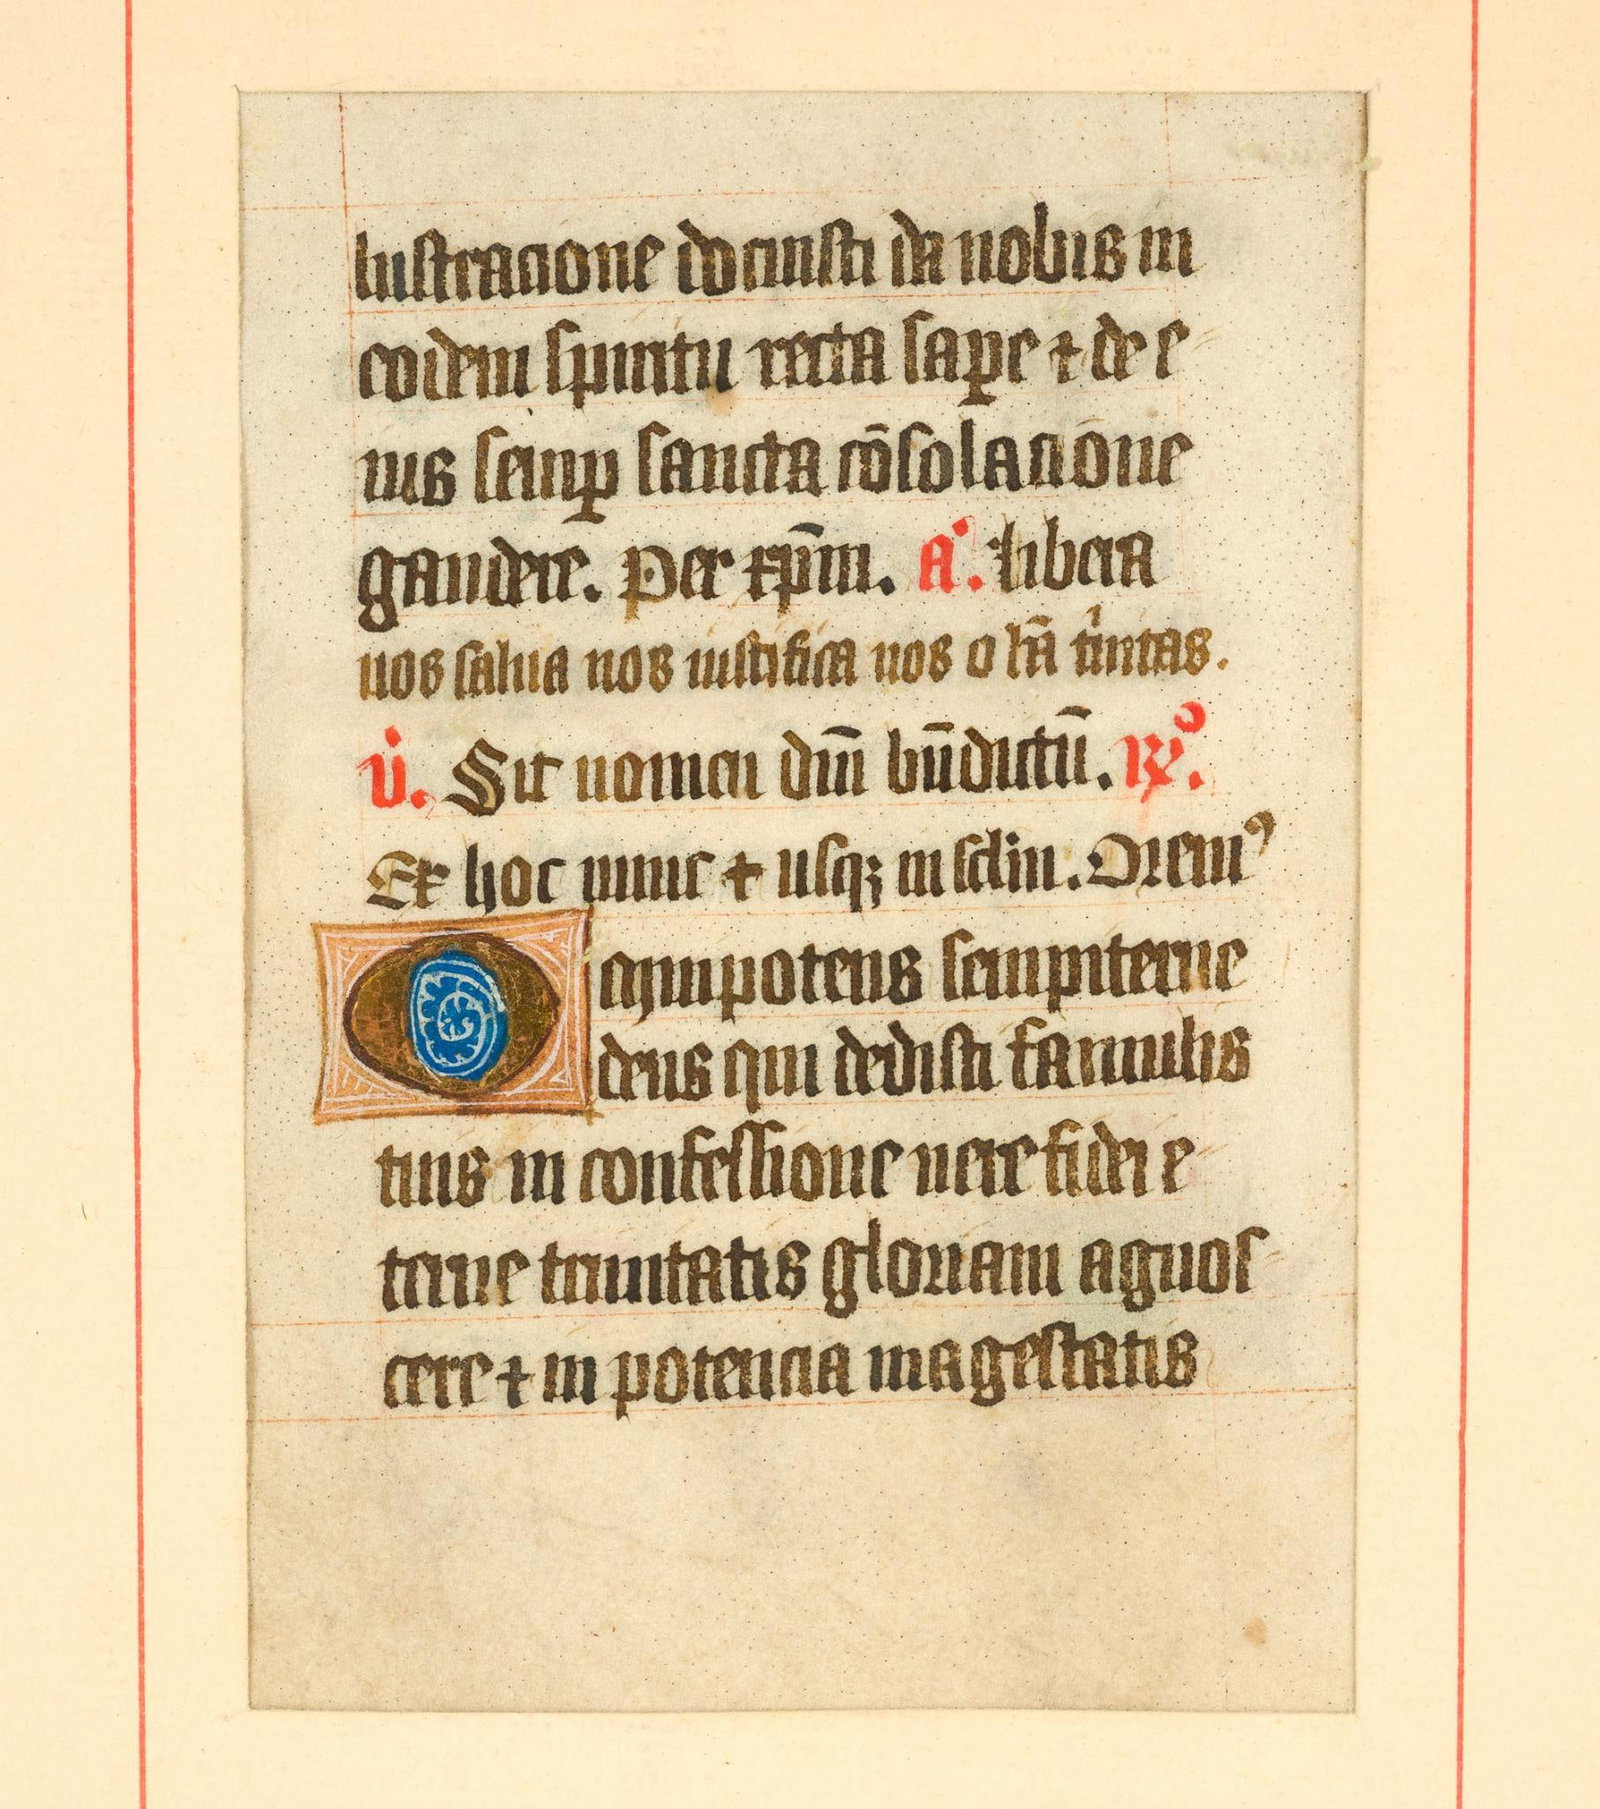 lustracione docuisti da nobis in
eodem spiritu recta sap̲e ⁊ de e
ius semp̲ sancta cōsolacione
gaudere. Per xp̄m. A°. libera
nos salua nos iustifica nos o b̄a tⁱnitas.
v̇. Sit nomen dn̄i bn̄dictū. ℟°.
Ex hoc nunc ⁊ usqꝫ in sclm̄. Oremꝰ
Omnipotens sempiterne
deus qui dedisti famulis
tuis in confessione uere fidei e
terne trinitatis gloriam agnos
cere ⁊ in potencia magestatis